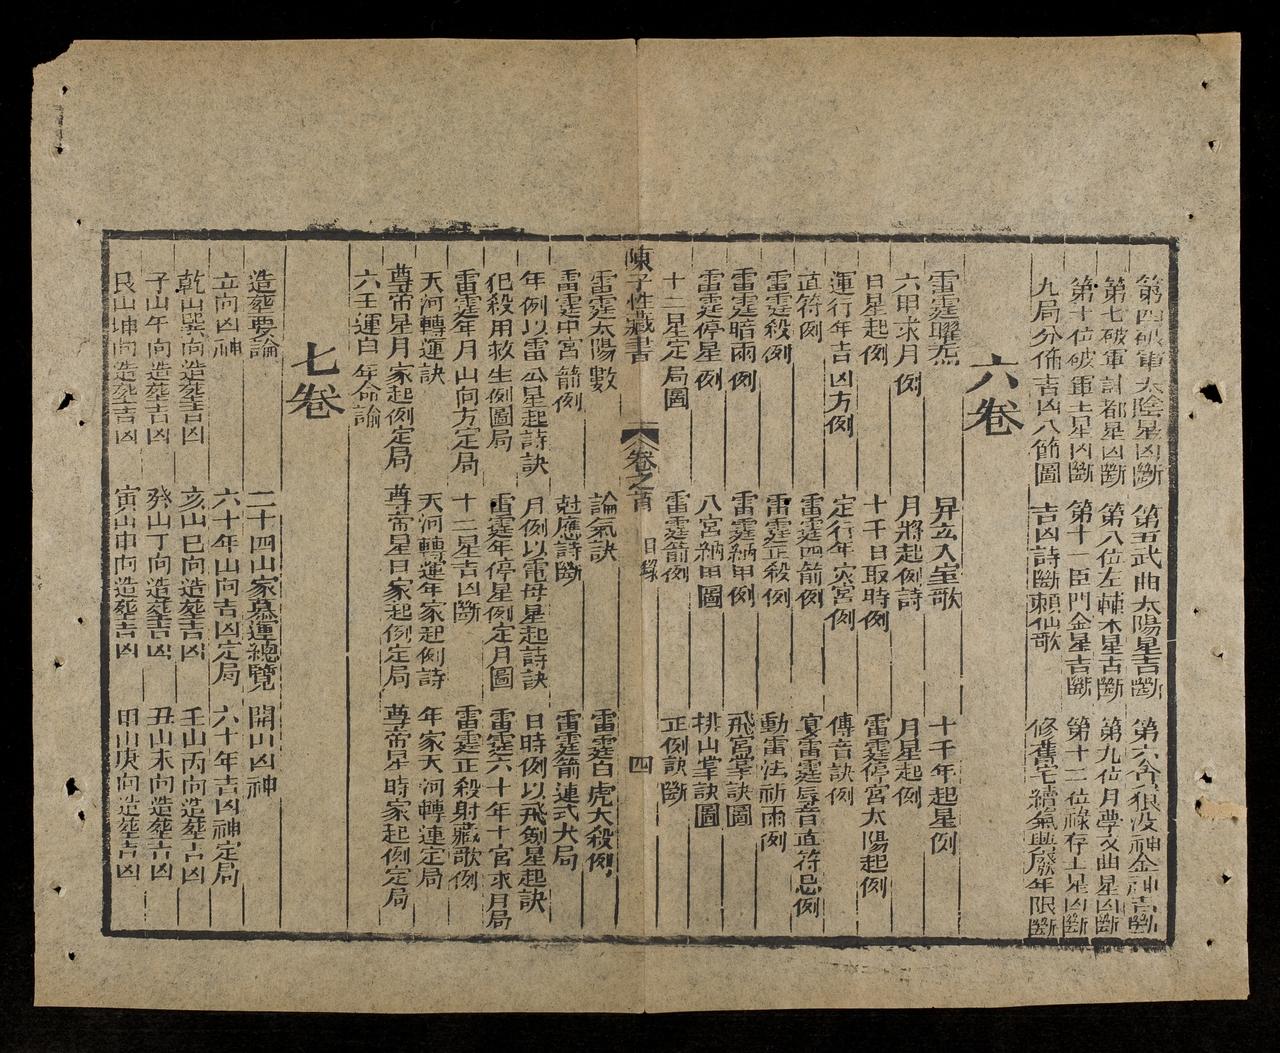 第四破軍太陰星凶斷 第五武曲太陽星吉斷 第六貪狼沒神金神吉斷
第七破軍計都星凶斷 第八位左輔木星古斷 第九位月孛文曲星凶斷
第十位破軍土星凶斷 第十一臣門金星吉斷 第十二位祿存土星凶斷
九局分佈吉凶八節圖 吉凶詩斷賴仙歌 修舊宅續氣興廢年限斷
六卷
雷霆曜氣 昇玄入室歌 十干年起星例
六甲求月例 月將起例詩 月星起例
日星起例 十千日取時例 雷霆停宮太陽起例
運行年吉凶方例 定行年灾宮例 傳音訣例
直符例 雷霆四箭例 雷霆辱音直符忌例
雷霆殺例 雷霆正殺例 動雷法祈雨例
雷霆暗雨例 雷霆納甲例 飛宮掌訣圖
雷霆停星例 八宮納甲圖 排山掌訣圖
十二星定局圖 雷霆箭例 正例訣斷
陳子性藏書 卷之首 目錄 四
雷霆太陽數 論氣訣 雷霆白虎大殺例
雷霆中宮箭例 尅應詩斷 雷霆箭連式大局
年例以雷公星起詩訣 月例以電母星起詩訣 日時例以飛劍星起訣
犯殺用救生例圖局 雷霆年停星例定月圖 雷霆六十年十宮求月局
雷霆年月山向方定局 十二星吉凶斷 雷霆正殺射藏歌例
天河轉運訣 天河轉運年家起例詩 年家天河轉連定局
尊帝星月家起例定局 尊帝星日家起例定局 尊帝星時家起例定局
六壬運白年命論
七卷
造葬要論 二十四山家墓運總覽 開山凶神
立向凶神 六十年山向吉凶定局 六十年吉凶神定局
乾山巽向造葬吉凶 亥山巳向造葬吉凶 壬山丙向造葬吉凶
子山午向造葬吉凶 癸山丁向造葬吉凶 丑山未向造葬吉凶
艮山坤向造葬吉凶 寅山申向造葬吉凶 甲山庚向造葬吉凶